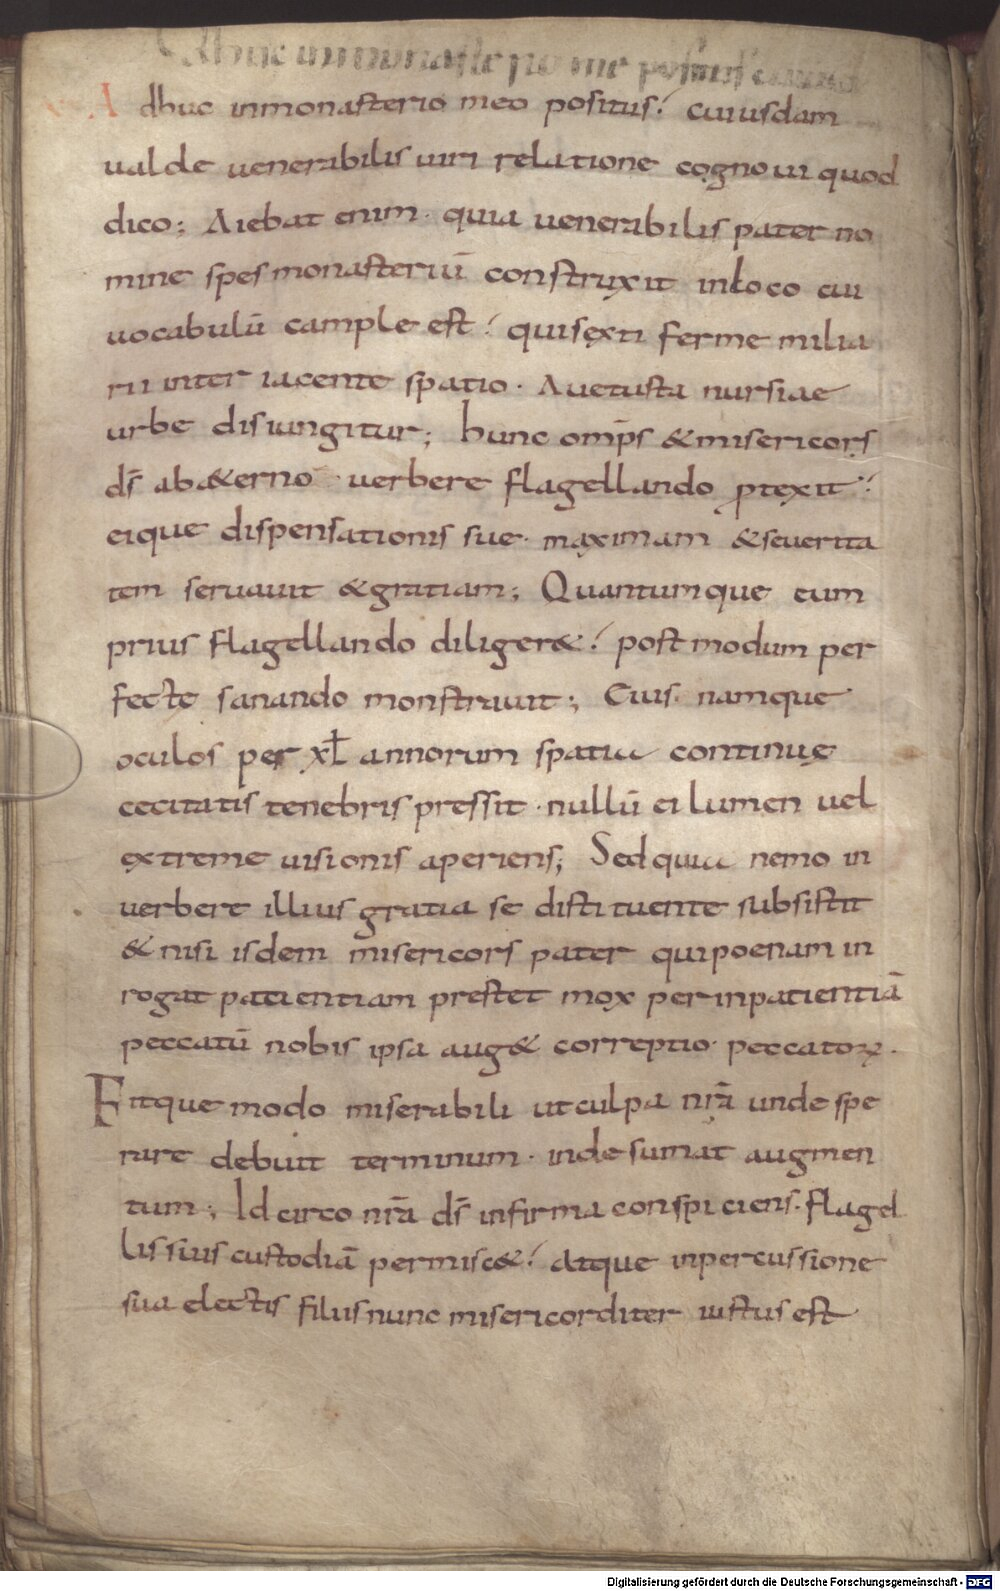 Adhuc in monasterio me positus cuiusd
Adhuc inmonasterio meo positus? cuiusdam
ualde uenerabilis uiri relatione cognoui quod
dico; Aiebat enim· quia uenerabilis pater no
mine spes monasteriū construxit inloco cui
uocabulū cample est? quisexti ferme milia
rii inter iacente spatio· Auetusta nursiae
urbe disiungitur; hunc omp̄s &misericors
d̄s ab&erno· uerbere flagellando ꝓtexit?
eique dispensationis sue· maximam &seuerita
tem seruauit &gratiam; Quantumque eum
prius flagellando diliger&? postmodum per
fecte sanando monstrauit; Cuis· namque
oculos per xL annorum spatia continuę
cecitatis tenebris pressit· nullū ei lumen uel
extreme uisionis aperiens; Sed quia nemo in
uerbere illius gratia se distituente subsistit
& nisi isdem misericors pater qui poenam in
rogat patientiam prestet mox per inpatientiā
peccatū nobis ipsa aug& correptio· peccatoꝝ·
Fitque modo miserabili ut culpa nr̄a unde spe
rare debuit terminum· inde sumat augmen
tum; Idcirco nr̄a d̄s infirma conspiciens· flagel
lis suis custodiā permisc&? Atque inpercussione
sua electis filiis nunc misericorditer iustus est
Digitalisierung gefördert durch die Deutsche Forschungsgemeinschaft - DFG